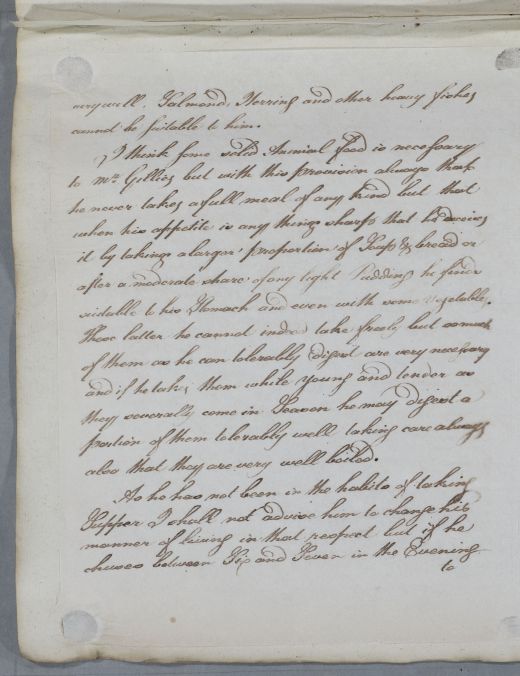 very well. Salmond, Herring and other heavy fishes
cannot be suitable to him.
I think some solid Animal food is necessary
to Mr. Gillies but with this provision always that
he never takes a full meal of any kind but that
when his appetite is any thing sharp that he
it by taking a larger proportion of Soup & bread or
after a moderate share of any light Pudding he finds
suitable to his Stomach and even with some vegetables.
These latter he cannot indeed take freely but as much
of them as he can tolerably digest are very necessary
and if he takes them while young and tender as
they severally come in Season he may digest a
portion of them tolerably well taking care always
also that they are very well boiled.
As he has not been in the habits of taking
Supper I shall not advise him to change his
manner of living in that respect but if he
chuses between Six and Seven in the Evening
to